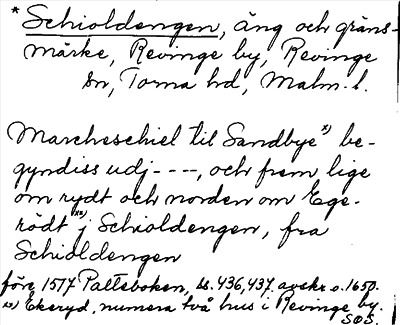 * Schioldengen, äng och gräns-
märke, Revinge by, Revinge
sn, Torna hd, Malm. l.
Marcheschiel til Sandbye x) be-
gyndiss udj ----, och frem lige
om rydt och norden om Ege-
rödt xx) j Schioldengen, fra
Schioldengen
före 1577 Palteboken, ss. 436, 437. avskr. o. 1650.
xx) Ekeryd, numera två hus i Revinge by.
SOS.